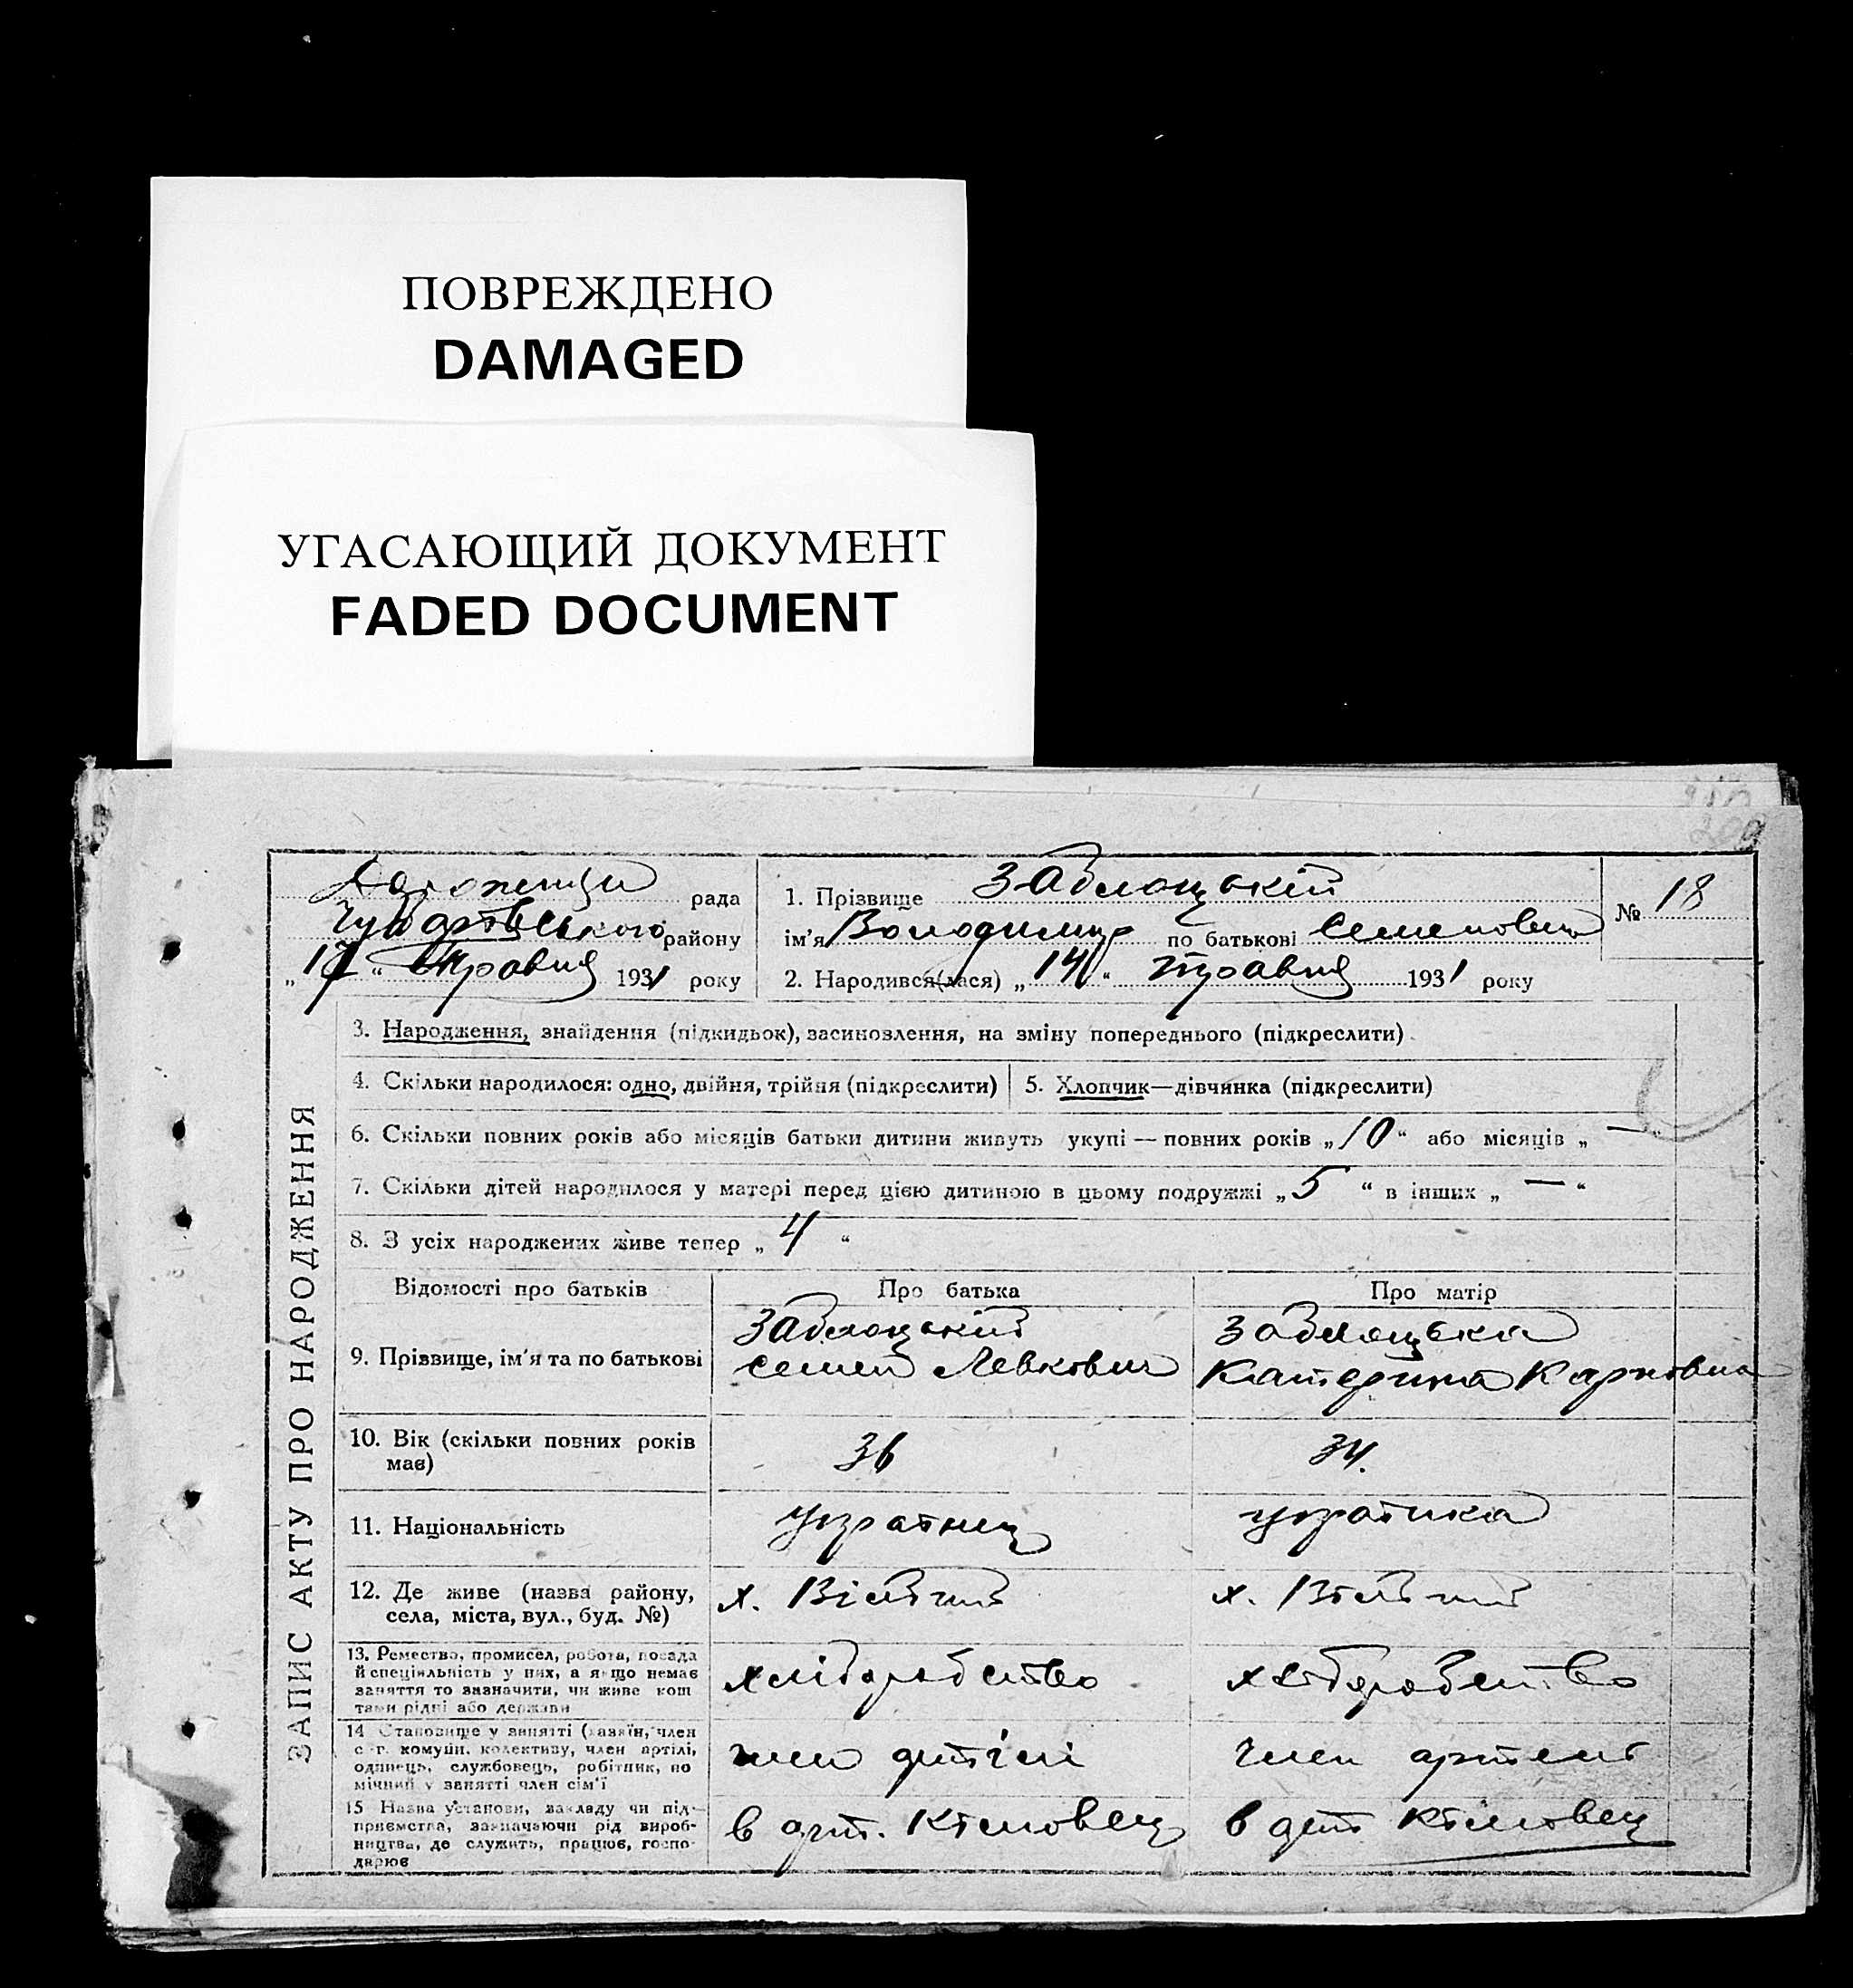 ПОВРЕЖДЕНО
DAMAGED
УГАСАЮЩИЙ ДОКУМЕНТ
FADED DOCUMENT
рада
району
„17“ Травня 1931 року
1. Прізвище Заблоцький
ім'я Володимир по батькові Семенович
2. Народився(лася) „14“ травня 1931 року
№ 18
ЗАПИС АКТУ ПРО НАРОДЖЕННЯ
3. Народження, знайдення (підкидьок), засиновлення, на зміну попереднього (підкреслити)
4. Скільки народилося: одно, двійня, трійня (підкреслити)
5. Хлопчик—дівчинка (підкреслити)
6. Скільки повних років або місяців батьки дитини живуть укупі — повних років „10“ або місяців „—“
7. Скільки дітей народилося у матері перед цією дитиною в цьому подружжі „5“ в інших „—“
8. З усіх народжених живе тепер „4“
Відомості про батьків
Про батька
Про матір
9. Прізвище, ім'я та по батькові
Заблоцький
Семен Левкович
Заблоцька
Катерина Карповна
10. Вік (скільки повних років
має)
36
34.
11. Національність
українец
українка
12. Де живе (назва району,
села, міста, вул., буд. №)
х.
х.
13. Ремество, промисел, робота, посада
й спеціяльність у них, а якщо немає
заняття то зазначити, чи живе кош
тами рідні або держави
хліборобство
хліборобство
14 Становище у занятті (хазяїн, член
с.-г. комуни, колективу, член артілі,
одинець, службовець, робітник, по
мічний у занятті член сім'ї
член артілі
член артелі
15 Назва установи, закладу чи під-
приємства, зазначаючи рід вироб-
ництва, де служить, працює, госпо-
дарює
в арт.
в арт